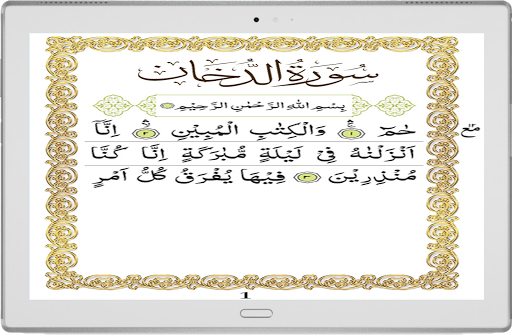 سُورَةُ الدُّخَان
بِسْمِ اللهِ الرَّحْمٰنِ الرَّحِيْمِ
حٰمٓ ۚ‏﴿۱﴾ وَالْكِتٰبِ الْمُبِيْنِ ۙ‏﴿۲﴾ اِنَّاۤ
مع
اَنْزَلْنٰهُ فِىْ لَيْلَةٍ مُّبٰرَكَةٍ اِنَّا كُنَّا
مُنْذِرِيْنَ ﴿۳﴾ فِيْهَا يُفْرَقُ كُلُّ اَمْرٍ
1